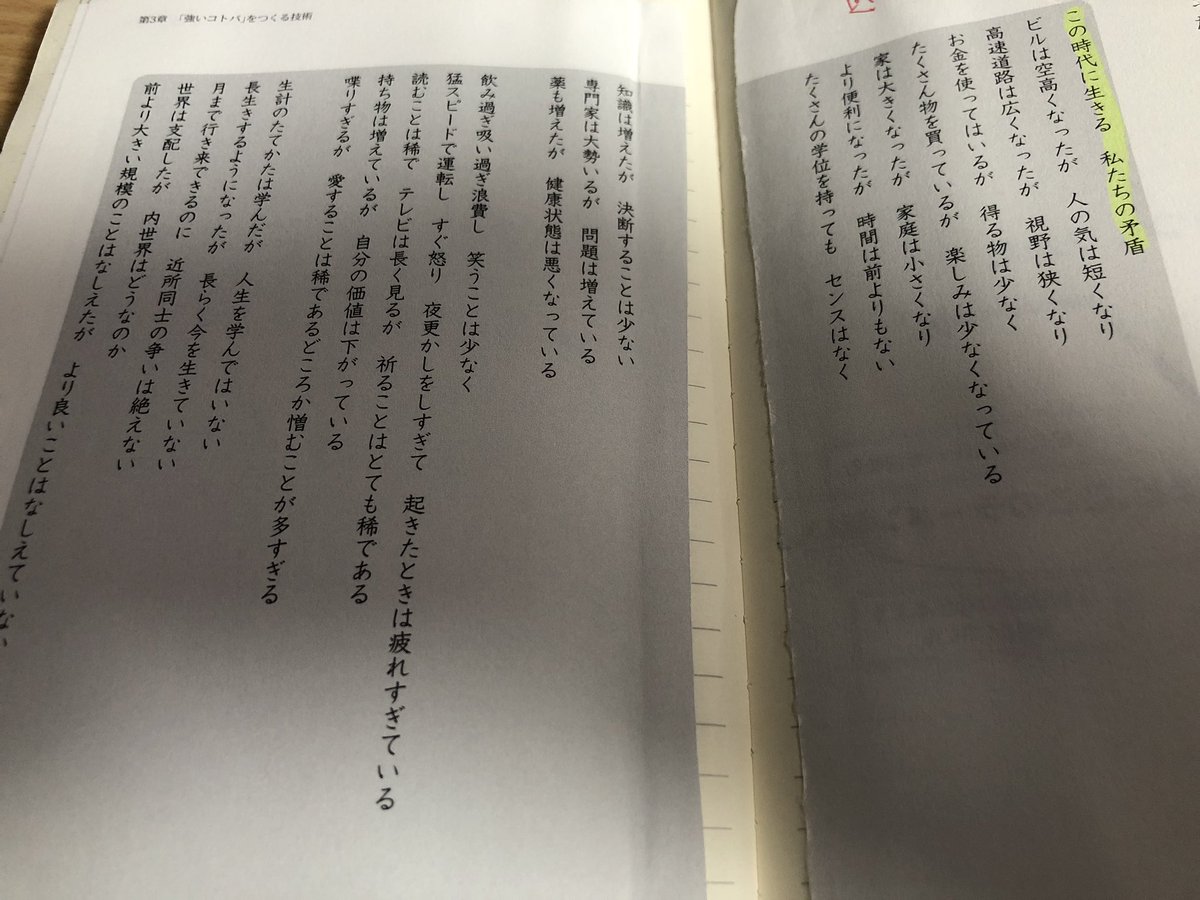 この時代に生きる 私たちの矛盾
ビルは空高くなったが 人の気は短くなり
高速道路は広くなったが 視野は狭くなり
お金を使ってはいるが 得る物は少なく
たくさん物を買っているが 楽しみは少なくなっている
家は大きくなったが 家庭は小さくなり
より便利になったが 時間は前よりもない
たくさんの学位を持っても センスはなく
第3章 「強いコトバ」をつくる技術
知識は増えたが 決断することは少ない
専門家は大勢いるが 問題は増えている
薬も増えたが 健康状態は悪くなっている
飲み過ぎ吸い過ぎ浪費し 笑うことは少なく
猛スピードで運転し すぐ怒り 夜更かしをしすぎて 起きたときは疲れすぎている
読むことは稀で テレビは長く見るが 祈ることはとても稀である
持ち物は増えているが 自分の価値は下がっている
喋りすぎるが 愛することは稀であるどころか憎むことが多すぎる
生計のたてかたは学んだが 人生を学んではいない
長生きするようになったが 長らく今を生きていない
月まで行き来できるのに 近所同士の争いは絶えない
世界は支配したが 内世界はどうなのか
前より大きい規模のことはなしえたが より良いことはなしえていない